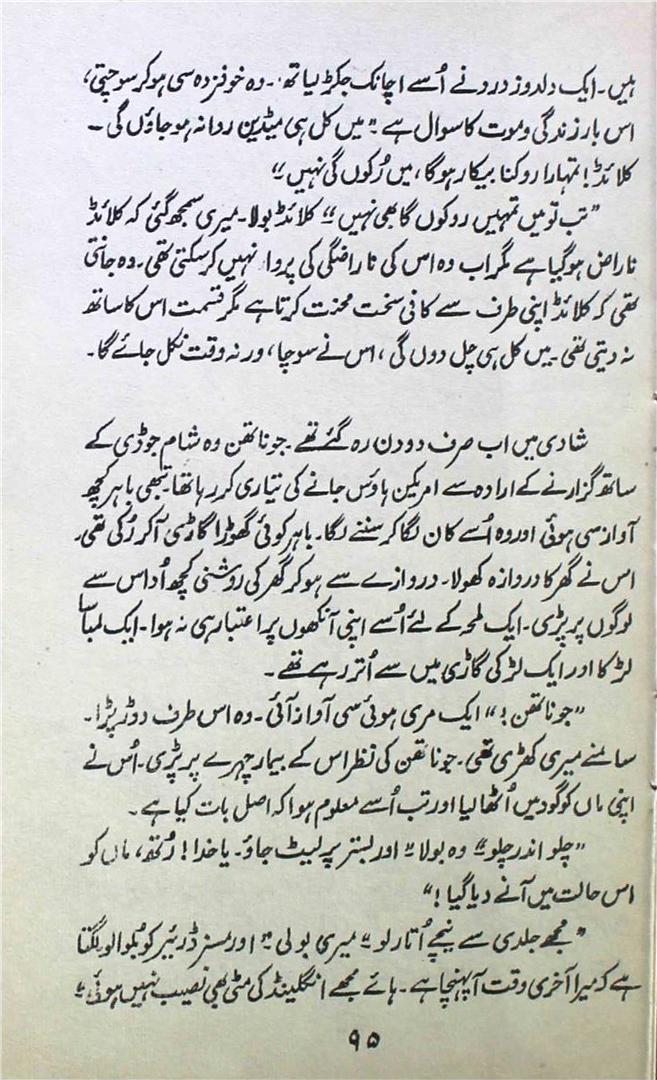 ہیں۔ ایک دلدوز درد نے اُسے اچانک جکڑ لیا تھا۔ وہ خوفزدہ سی ہو کر سوچتی،
اس بار زندگی و موت کا سوال ہے “ میں کل ہی میڈین روانہ ہو جاؤں گی ۔
کلائڈ! تمہارا روکنا بیکار ہوگا، میں رُکوں گی نہیں “
” تب تو میں تمہیں روکوں گا بھی نہیں “ کلائڈ بولا۔ میری سمجھ گئی کہ کلائڈ
ناراض ہوگیا ہے مگر اب وہ اس کی ناراضگی کی پروا نہیں کر سکتی تھی۔ وہ جانتی
تھی کہ کلائڈ اپنی طرف سے کافی سخت محنت کرتا ہے مگر قسمت اس کا ساتھ
نہ دیتی تھی۔ میں کل ہی چل دوں گی ، اس نے سوچا ، ورنہ وقت نکل جائے گا۔
شادی میں اب صرف دو دن رہ گئے تھے۔ جوناتھن وہ شام جوڈی کے
ساتھ گزارنے کے ارادہ سے امریکن ہاؤس جانے کی تیاری کر رہا تھا۔ تبھی باہر کچھ
آواز سی ہوئی اور وہ اُسے کان لگا کر سننے لگا۔ باہر کوئی گھوڑا گاڑی آکر رُکی تھی۔
اس نے گھر کا دروازہ کھولا۔ دروازے سے ہو کر گھر کی روشنی کچھ اُداس سے
لوگوں پر پڑی۔ ایک لمحہ کے لئے اُسے اپنی آنکھوں پر اعتبار ہی نہ ہوا۔ ایک لمبا سا
لڑکا اور ایک لڑکی گاڑی میں سے اُتر رہے تھے ۔
” جوناتھن! “ ایک مری ہوئی سی آواز آئی۔ وہ اس طرف دوڑ پڑا۔
سامنے میری کھڑی تھی۔ جوناتھن کی نظر اس کے بیمار چہرے پر پڑی۔ اُس نے
اپنی ماں کو گود میں اُٹھا لیا اور تب اُسے معلوم ہوا کہ اصل بات کیا ہے ۔
” چلو اندر چلو “ وہ بولا “ اور بستر پر لیٹ جاؤ۔ یا خدا ! رُتھ، ماں کو
اس حالت میں آنے دیا گیا ! “
” مجھے جلدی سے نیچے اُتار لو “ میری بولی “ اور مسز ڈرئیر کو بُلوا لو لگتا
ہے کہ میرا آخری وقت آ پہنچا ہے۔ ہائے مجھے انگلینڈ کی مٹی بھی نصیب نہیں ہوئی “
۹۵